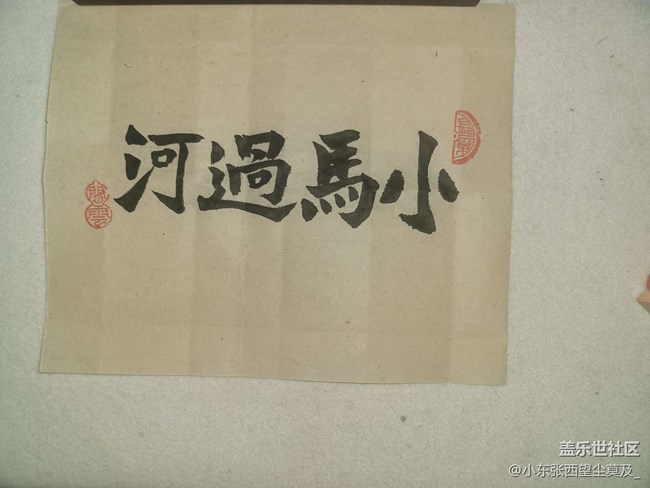 小馬過河
盖乐世社区
@小东张西望尘莫及_